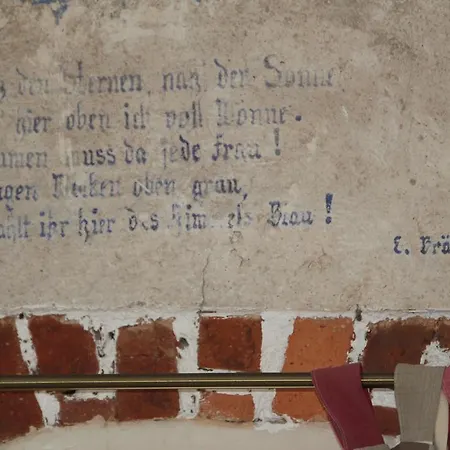 den Sternen, nah der Sonne
hier oben ich voll Wonne.
muss da jede Frau!
oben grau,
ihr hier des Himmels Blau!
E. Brä